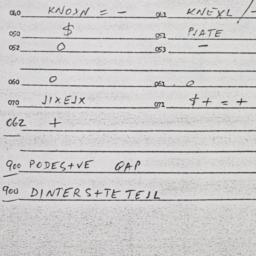 040 KNOWN = - 041 KNEXL / -
050 $ 051 PLATE
052 O 053 -
060 O 061 . O
070 JIXEJX 072 $ + = +
062 +
900 PODES+VE GAP
900 DINTERS+TE TEJL